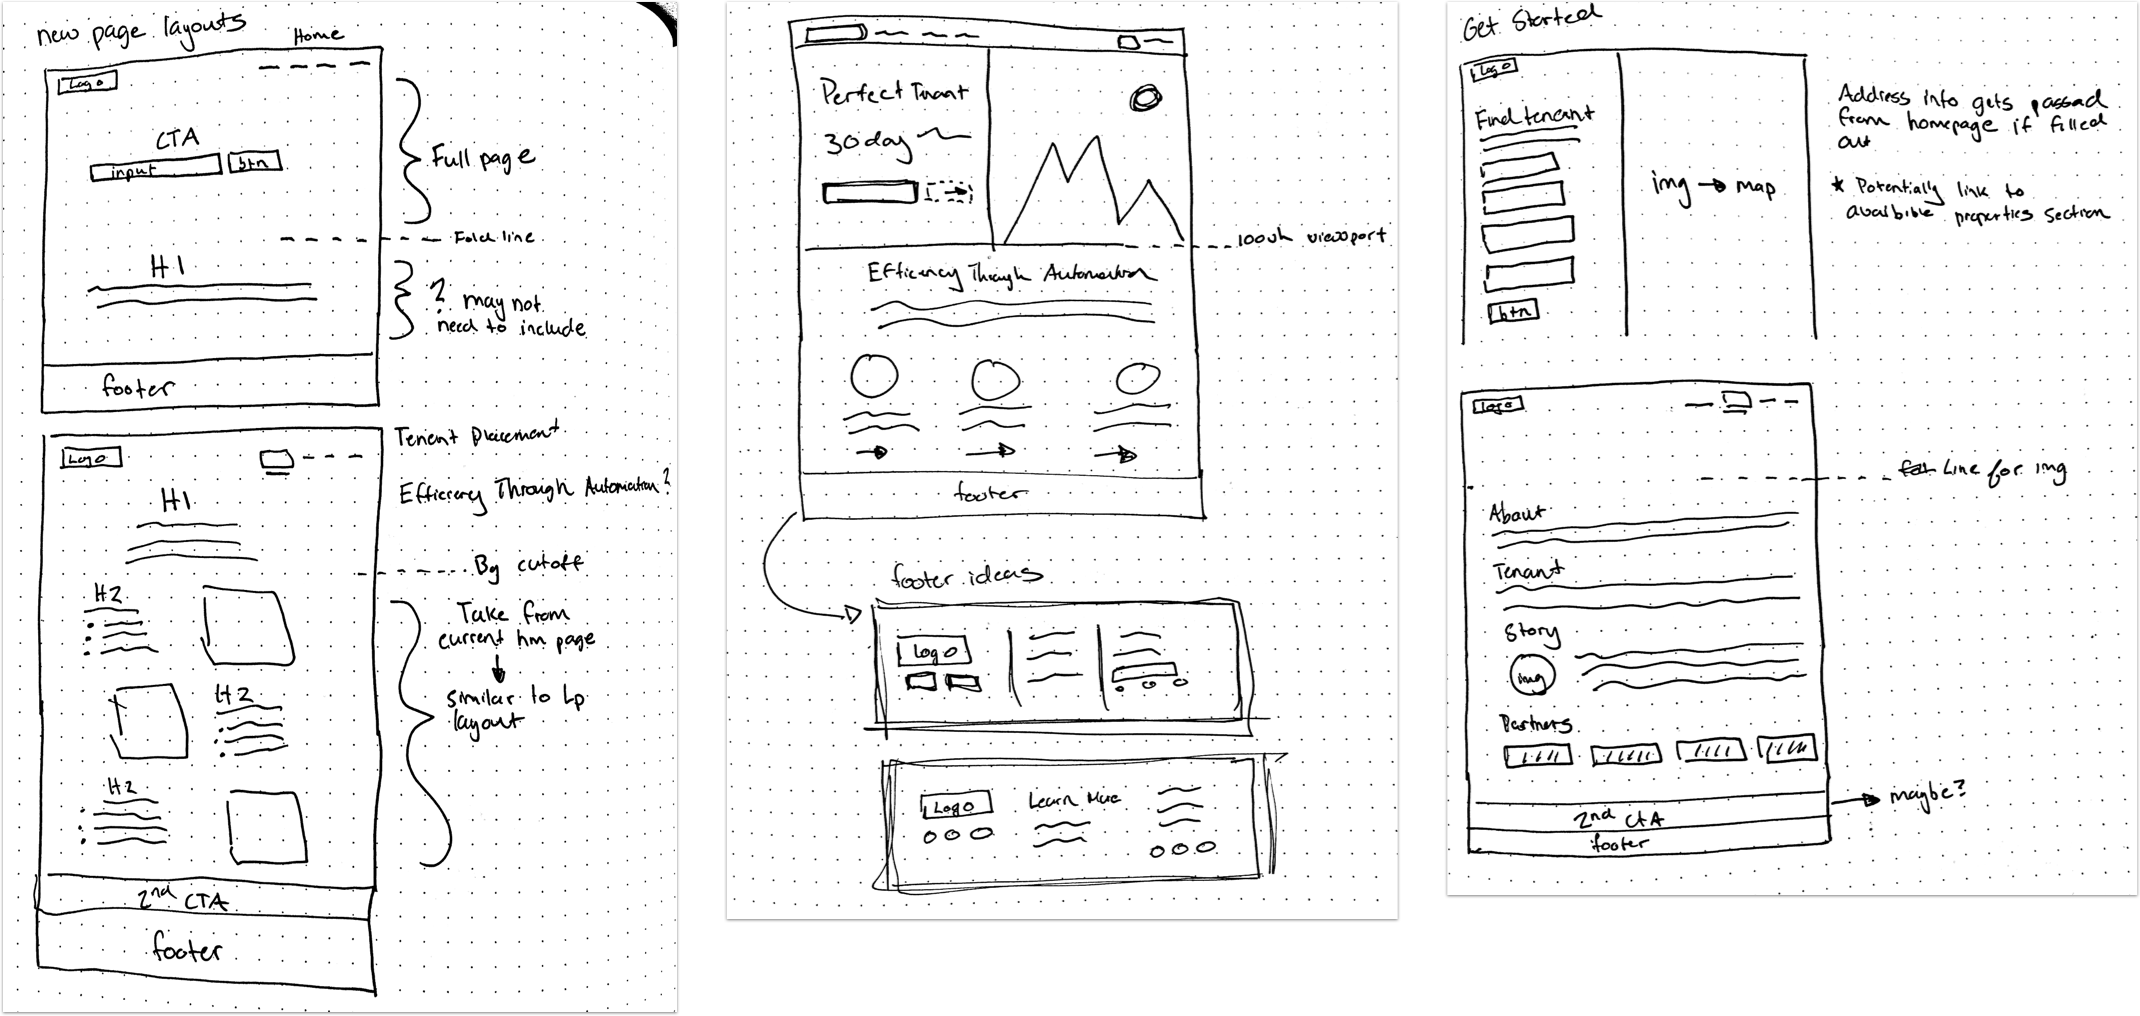 new page layouts
Home
Logo
CTA
input
btn
Full page
Fold line
H1
? may not
need to include
footer
Tenant Placement
Logo
Efficiency Through Automation?
H1
Bg cutoff
H2
Take from
current hm page
similar to Lp
layout
H2
H2
2nd CTA
footer
Perfect Tenant
30 day
100vh viewport
Efficiency Through Automation
footer
footer ideas
Logo
Logo
Learn More
Get Started
Logo
Find tenant
btn
img → map
Address info gets passed
from homepage if filled
out
* Potentially link to
availbible properties section
Logo
Line for img
About
Tenant
Story
img
Partners
2nd CTA
maybe?
footer